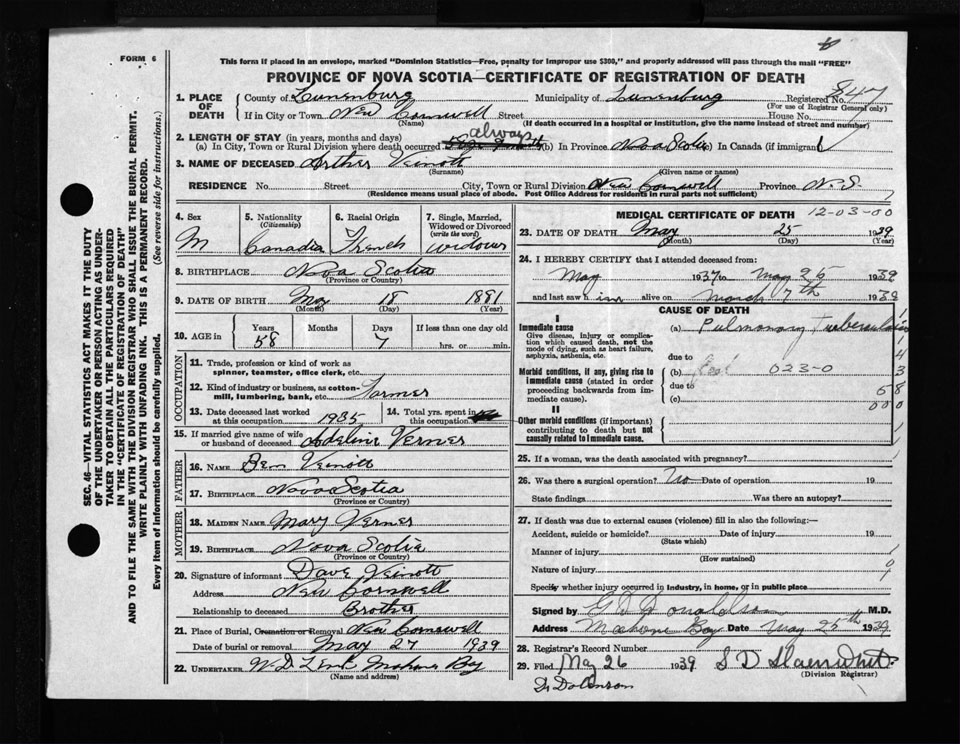 FORM 6
This form if placed in an envelope, marked "Dominion Statistics—Free, penalty for improper use $300," and properly addressed will pass through the mail "FREE"
PROVINCE OF NOVA SCOTIA—CERTIFICATE OF REGISTRATION OF DEATH
1. PLACE OF DEATH { County of Lunenburg Municipality of Lunenburg Registered No. 847
(For use of Registrar General only)
If in City or Town New Cornwell Street House No.
(Name) (If death occurred in a hospital or institution, give the name instead of street and number)
2. LENGTH OF STAY (in years, months and days) always
(a) In City, Town or Rural Division where death occurred (b) In Province Nova Scotia In Canada (if immigrant)
3. NAME OF DECEASED Arther Veinott
(Surname) (Given name or names)
RESIDENCE No. Street City, Town or Rural Division New Cornwell Province N.S.
(Residence means usual place of abode. Post Office Address for residents in rural parts not sufficient)
4. Sex M
5. Nationality (Citizenship) Canadia
6. Racial Origin French
7. Single, Married, Widowed or Divorced (write the word) widower
8. BIRTHPLACE Nova Scotia
(Province or Country)
9. DATE OF BIRTH May 18 1881
(Month) (Day) (Year)
10. AGE in Years Months Days If less than one day old
58 7 hrs. or min.
OCCUPATION
11. Trade, profession or kind of work as spinner, teamster, office clerk, etc.
12. Kind of industry or business, as cotton-mill, lumbering, bank, etc. Farmer
13. Date deceased last worked at this occupation 1935
14. Total yrs. spent in
15. If married give name of wife or husband of deceased Adeline Verner
FATHER
16. NAME Ben Veinott
17. BIRTHPLACE Nova Scotia
(Province or Country)
MOTHER
18. MAIDEN NAME Mary Verner
19. BIRTHPLACE Nova Scotia
(Province or Country)
20. Signature of informant Dave Veinott
Address New Cornwell
Relationship to deceased Brother
21. Place of Burial, Cremation or Removal New Cornwell
Date of burial or removal May 27 1939
22. UNDERTAKER W. D. Mahone Bay
(Name and address)
MEDICAL CERTIFICATE OF DEATH 12-03-00
23. DATE OF DEATH May 25 1939
(Month) (Day) (Year)
24. I HEREBY CERTIFY that I attended deceased from:
May 1937 to May 25 1939
and last saw him alive on March 7th 1939
CAUSE OF DEATH
I
Immediate cause
Give disease, injury or complication which caused death, not the mode of dying, such as heart failure, asphyxia, asthenia, etc.
(a) Pulmonary Tuberculosis
due to
Morbid conditions, if any, giving rise to immediate cause (stated in order proceeding backwards from immediate cause).
(b) 023-0
due to
(c)
II
Other morbid conditions (if important) contributing to death but not causally related to immediate cause.
25. If a woman, was the death associated with pregnancy?
26. Was there a surgical operation? No Date of operation 19
State findings Was there an autopsy?
27. If death was due to external causes (violence) fill in also the following:—
Accident, suicide or homicide? Date of injury 19
(State which)
Manner of injury
(How sustained)
Nature of injury
Specify whether injury occurred in industry, in home, or in public place
Signed by G D Donaldson M.D.
Address Mahone Bay Date May 25th 1939
28. Registrar's Record Number
29. Filed May 26 1939 S D
(Division Registrar)
SEC. 46—VITAL STATISTICS ACT MAKES IT THE DUTY OF THE UNDERTAKER OR PERSON ACTING AS UNDERTAKER TO OBTAIN ALL THE PARTICULARS REQUIRED IN THE "CERTIFICATE OF REGISTRATION OF DEATH" AND TO FILE THE SAME WITH THE DIVISION REGISTRAR WHO SHALL ISSUE THE BURIAL PERMIT.
WRITE PLAINLY WITH UNFADING INK. THIS IS A PERMANENT RECORD.
Every item of information should be carefully supplied. (See reverse side for instructions.)